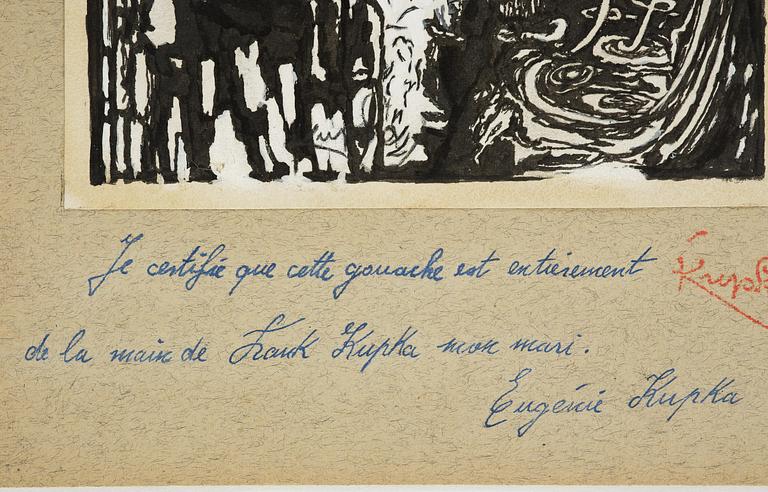 Je certifie que cette gouache est entièrement
Kupka
de la main de Frank Kupka mon mari.
Eugénie Kupka